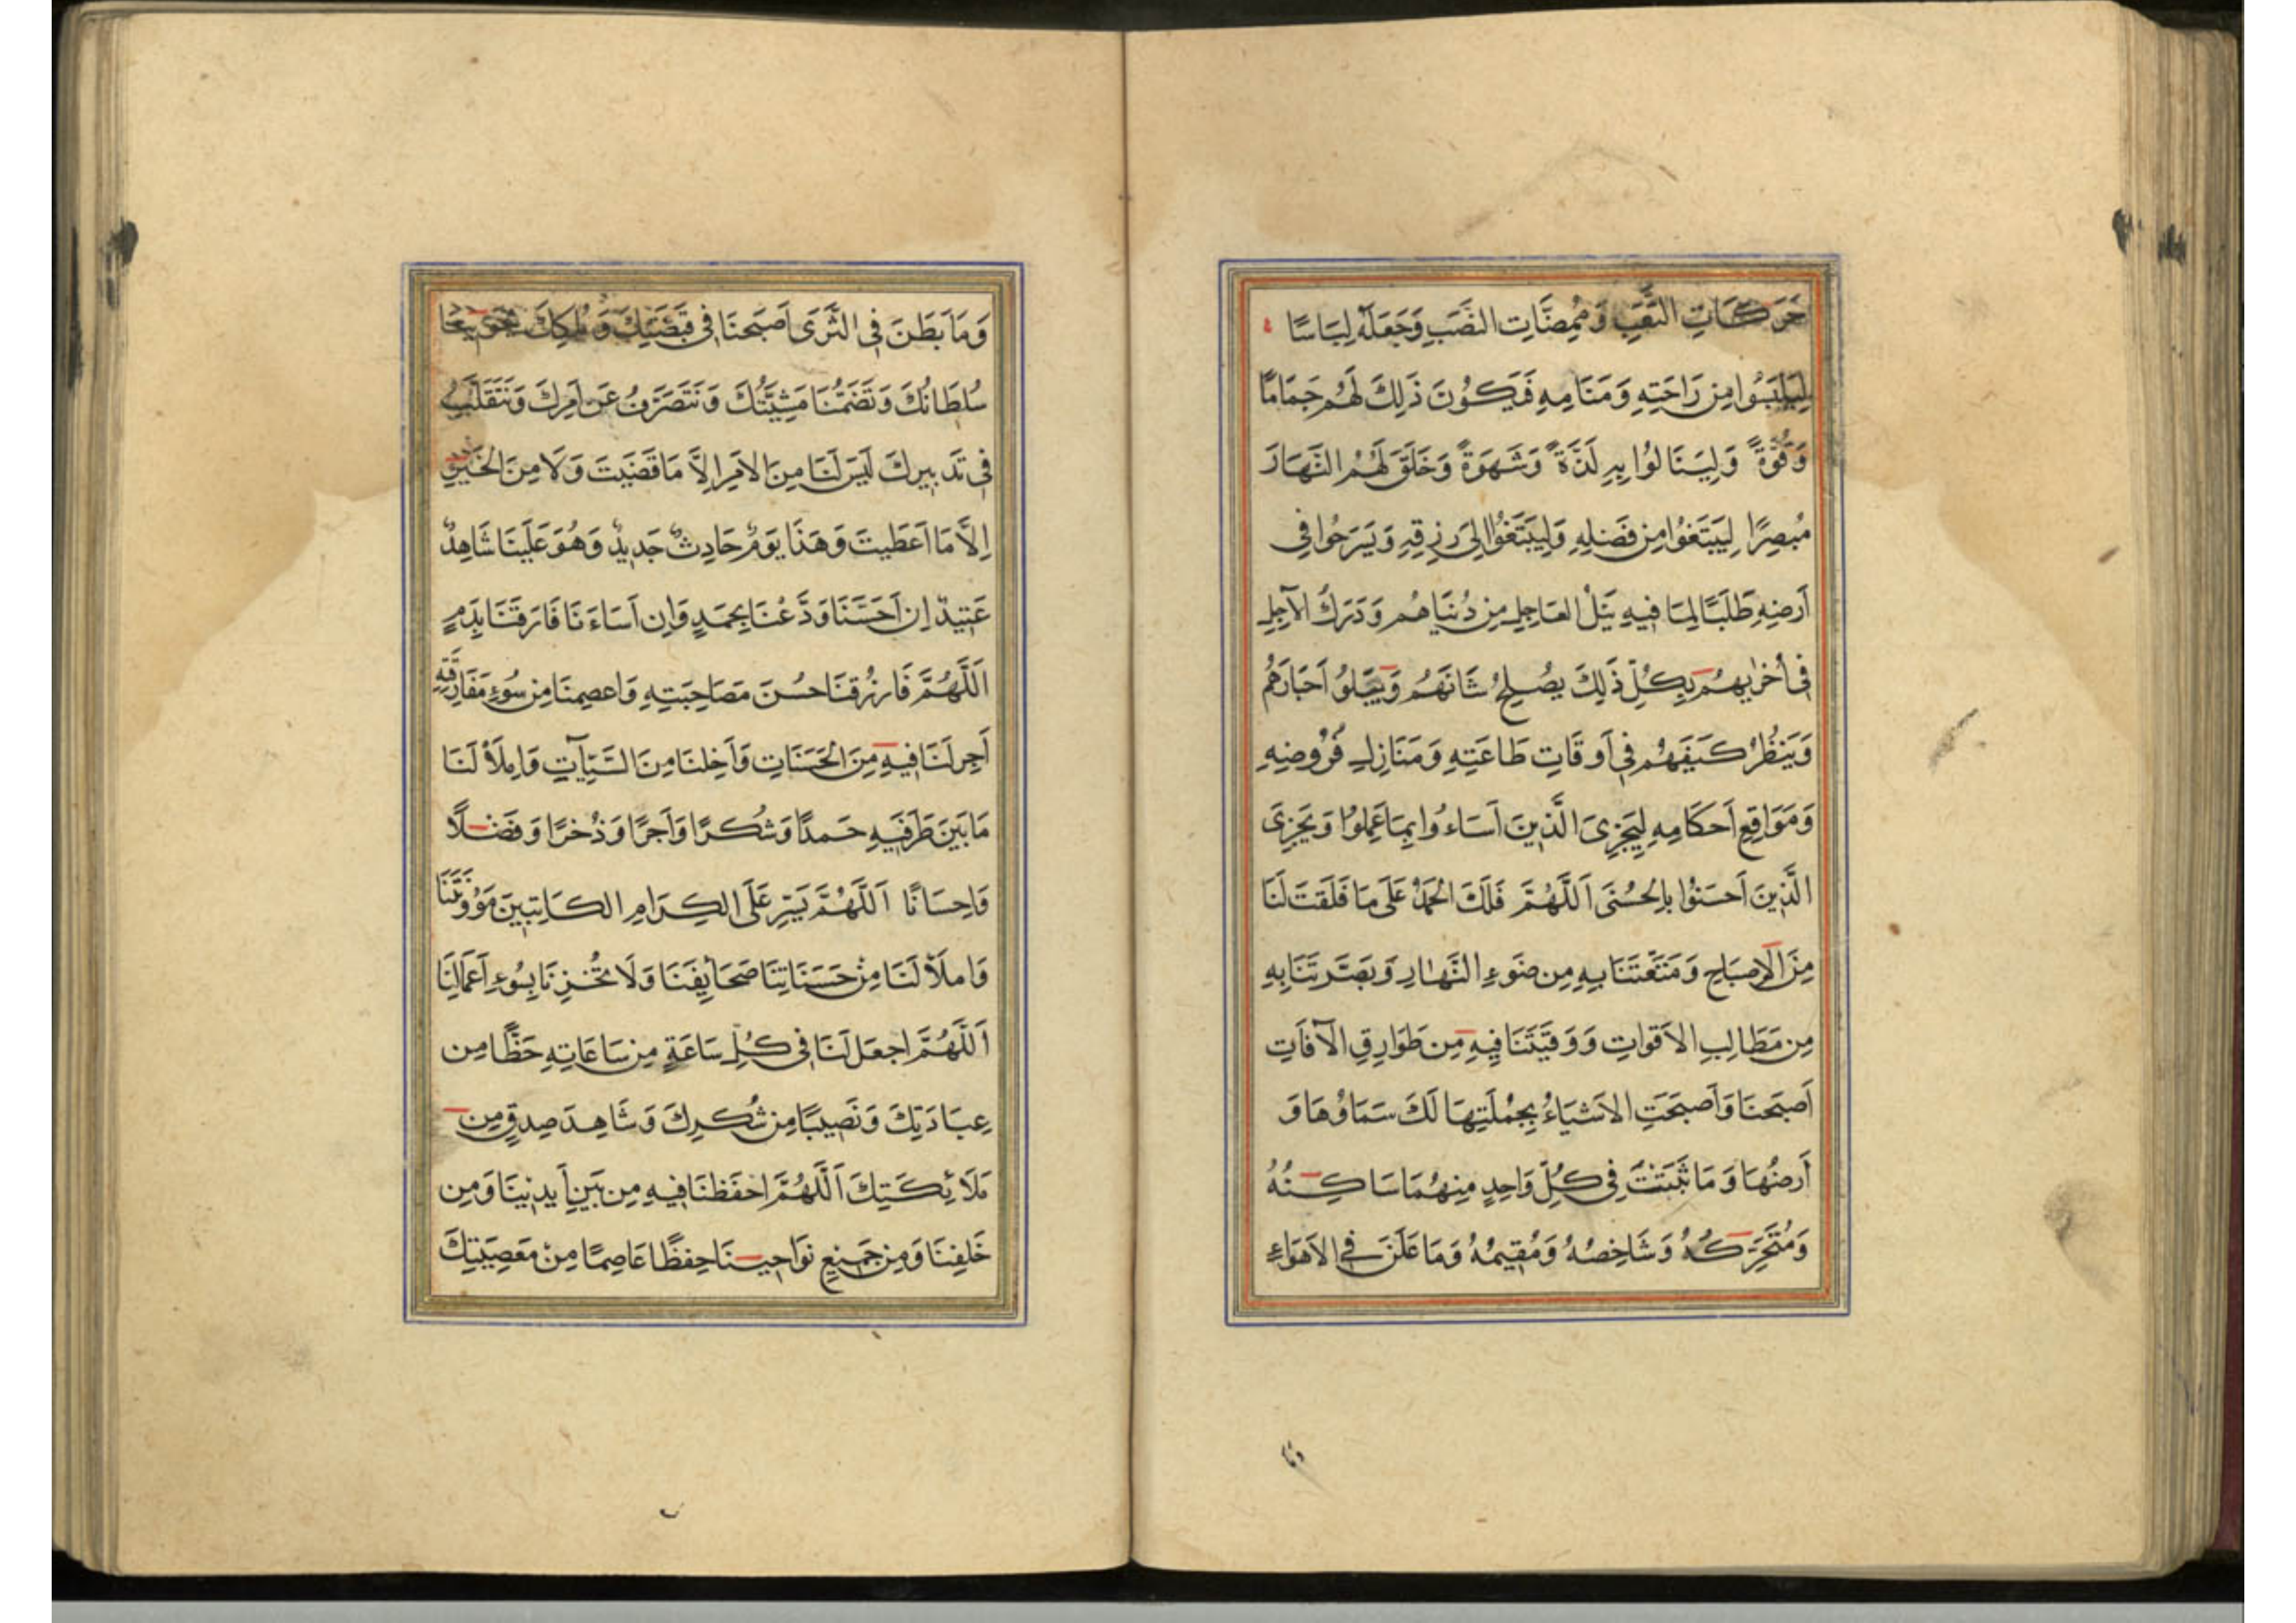 حَرَكَاتِ التَّعَبِ وَمُمِضَّاتِ النَّصَبِ وَجَعَلَهُ لِبَاسًا
لِيَلْبَسُوا مِن رَاحَتِهِ وَمَنَامِهِ فَيَكُونَ ذَلِكَ لَهُم جَمَامًا
وَقُوَّةً وَلِيَنَالُوا بِهِ لَذَّةً وَشَهوَةً وَخَلَقَ لَهُمُ النَّهَارَ
مُبصِرًا لِيَبتَغُوا مِن فَضلِهِ وَلِيَبتَغُوا اِلَى رِزقِهِ وَيَسرَحُوا فِى
اَرضِهِ طَلَبًا لِمَا فِيهِ نَيلُ العَاجِلِ مِن دُنيَاهُم وَدَرَكُ الآجِلِ
فِى اُخرٰيهُم بِكُلِّ ذَلِكَ يُصلِحُ شَانَهُم وَيَبلُو اَخبَارَهُم
وَيَنظُرُ كَيفَهُم فِى اَوقَاتِ طَاعَتِهِ وَمَنَازِلِ فُرُوضِهِ
وَمَوَاقِعِ اَحكَامِهِ لِيَجزِىَ الَّذِينَ اَسَاءُوا بِمَا عَمِلُوا وَيَجزِىَ
الَّذِينَ اَحسَنُوا بِالحُسنَى اَللَّهُمَّ فَلَكَ الحَمدُ عَلَى مَا فَلَقتَ لَنَا
مِنَ الاِصبَاحِ وَمَتَّعتَنَا بِهِ مِن ضَوءِ النَّهَارِ وَبَصَّرتَنَا بِهِ
مِن مَطَالِبِ الاَقوَاتِ وَوَقَيتَنَا فِيهِ مِن طَوَارِقِ الآفَاتِ
اَصبَحنَا وَاَصبَحَتِ الاَشيَاءُ بِجُملَتِهَا لَكَ سَمَاؤُهَا وَ
اَرضُهَا وَمَا بَثَثتَ فِى كُلِّ وَاحِدٍ مِنهُمَا سَاكِنُهُ
وَمُتَحَرِّكُهُ وَشَاخِصُهُ وَمُقِيمُهُ وَمَا عَلَنَ فِى الاَهوَاءِ
وَمَا
وَمَا بَطَنَ فِى الثَّرَى اَصبَحنَا فِى قَبضَتِكَ وَمُلكِكَ يَحوِينَا
سُلطَانُكَ وَتَضُمُّنَا مَشِيَّتُكَ وَنَتَصَرَّفُ عَن اَمرِكَ وَنَتَقَلَّبُ
فِى تَدبِيرِكَ لَيسَ لَنَا مِنَ الاَمرِ اِلاَّ مَا قَضَيتَ وَلَا مِنَ الخَيرِ
اِلاَّ مَا اَعطَيتَ وَهَذَا يَومٌ حَادِثٌ جَدِيدٌ وَهُوَ عَلَينَا شَاهِدٌ
عَتِيدٌ اِن اَحسَنَّا وَدَّعَنَا بِحَمدٍ وَاِن اَسَاءنَا فَارَقَنَا بِذَمٍ
اَللَّهُمَّ فَارزُقنَا حُسنَ مَصَاحِبَتِهِ وَاعصِمنَا مِن سُوءِ مَفَارِقَتِهِ
اَجرِ لَنَا فِيهِ مِنَ الحَسَنَاتِ وَاَخلِنَا مِنَ السَّيِّآتِ وَاملَأ لَنَا
مَا بَينَ طَرَفَيهِ حَمدًا وَشُكرًا وَاَجرًا وَذُخرًا وَفَضلًا
وَاِحسَانًا اَللَّهُمَّ يَسِّر عَلَى الكِرَامِ الكَاتِبِينَ مَؤُونَتَنَا
وَاملَأ لَنَا مِن حَسَنَاتِنَا صَحَائِفَنَا وَلَا تُخزِنَا بِسُوءِ اَعمَالِنَا
اَللَّهُمَّ اجعَل لَنَا فِى كُلِّ سَاعَةٍ مِن سَاعَاتِهِ حَظًّا مِن
عِبَادَتِكَ وَنَصِيبًا مِن شُكرِكَ وَشَاهِدَ صِدقٍ مِن
مَلَائِكَتِكَ اَللَّهُمَّ احفَظنَا فِيهِ مِن بَينِ اَيدِينَا وَمِن
خَلفِنَا وَمِن جَمِيعِ نَوَاحِينَا حِفظًا عَاصِمًا مِن مَعصِيَتِكَ